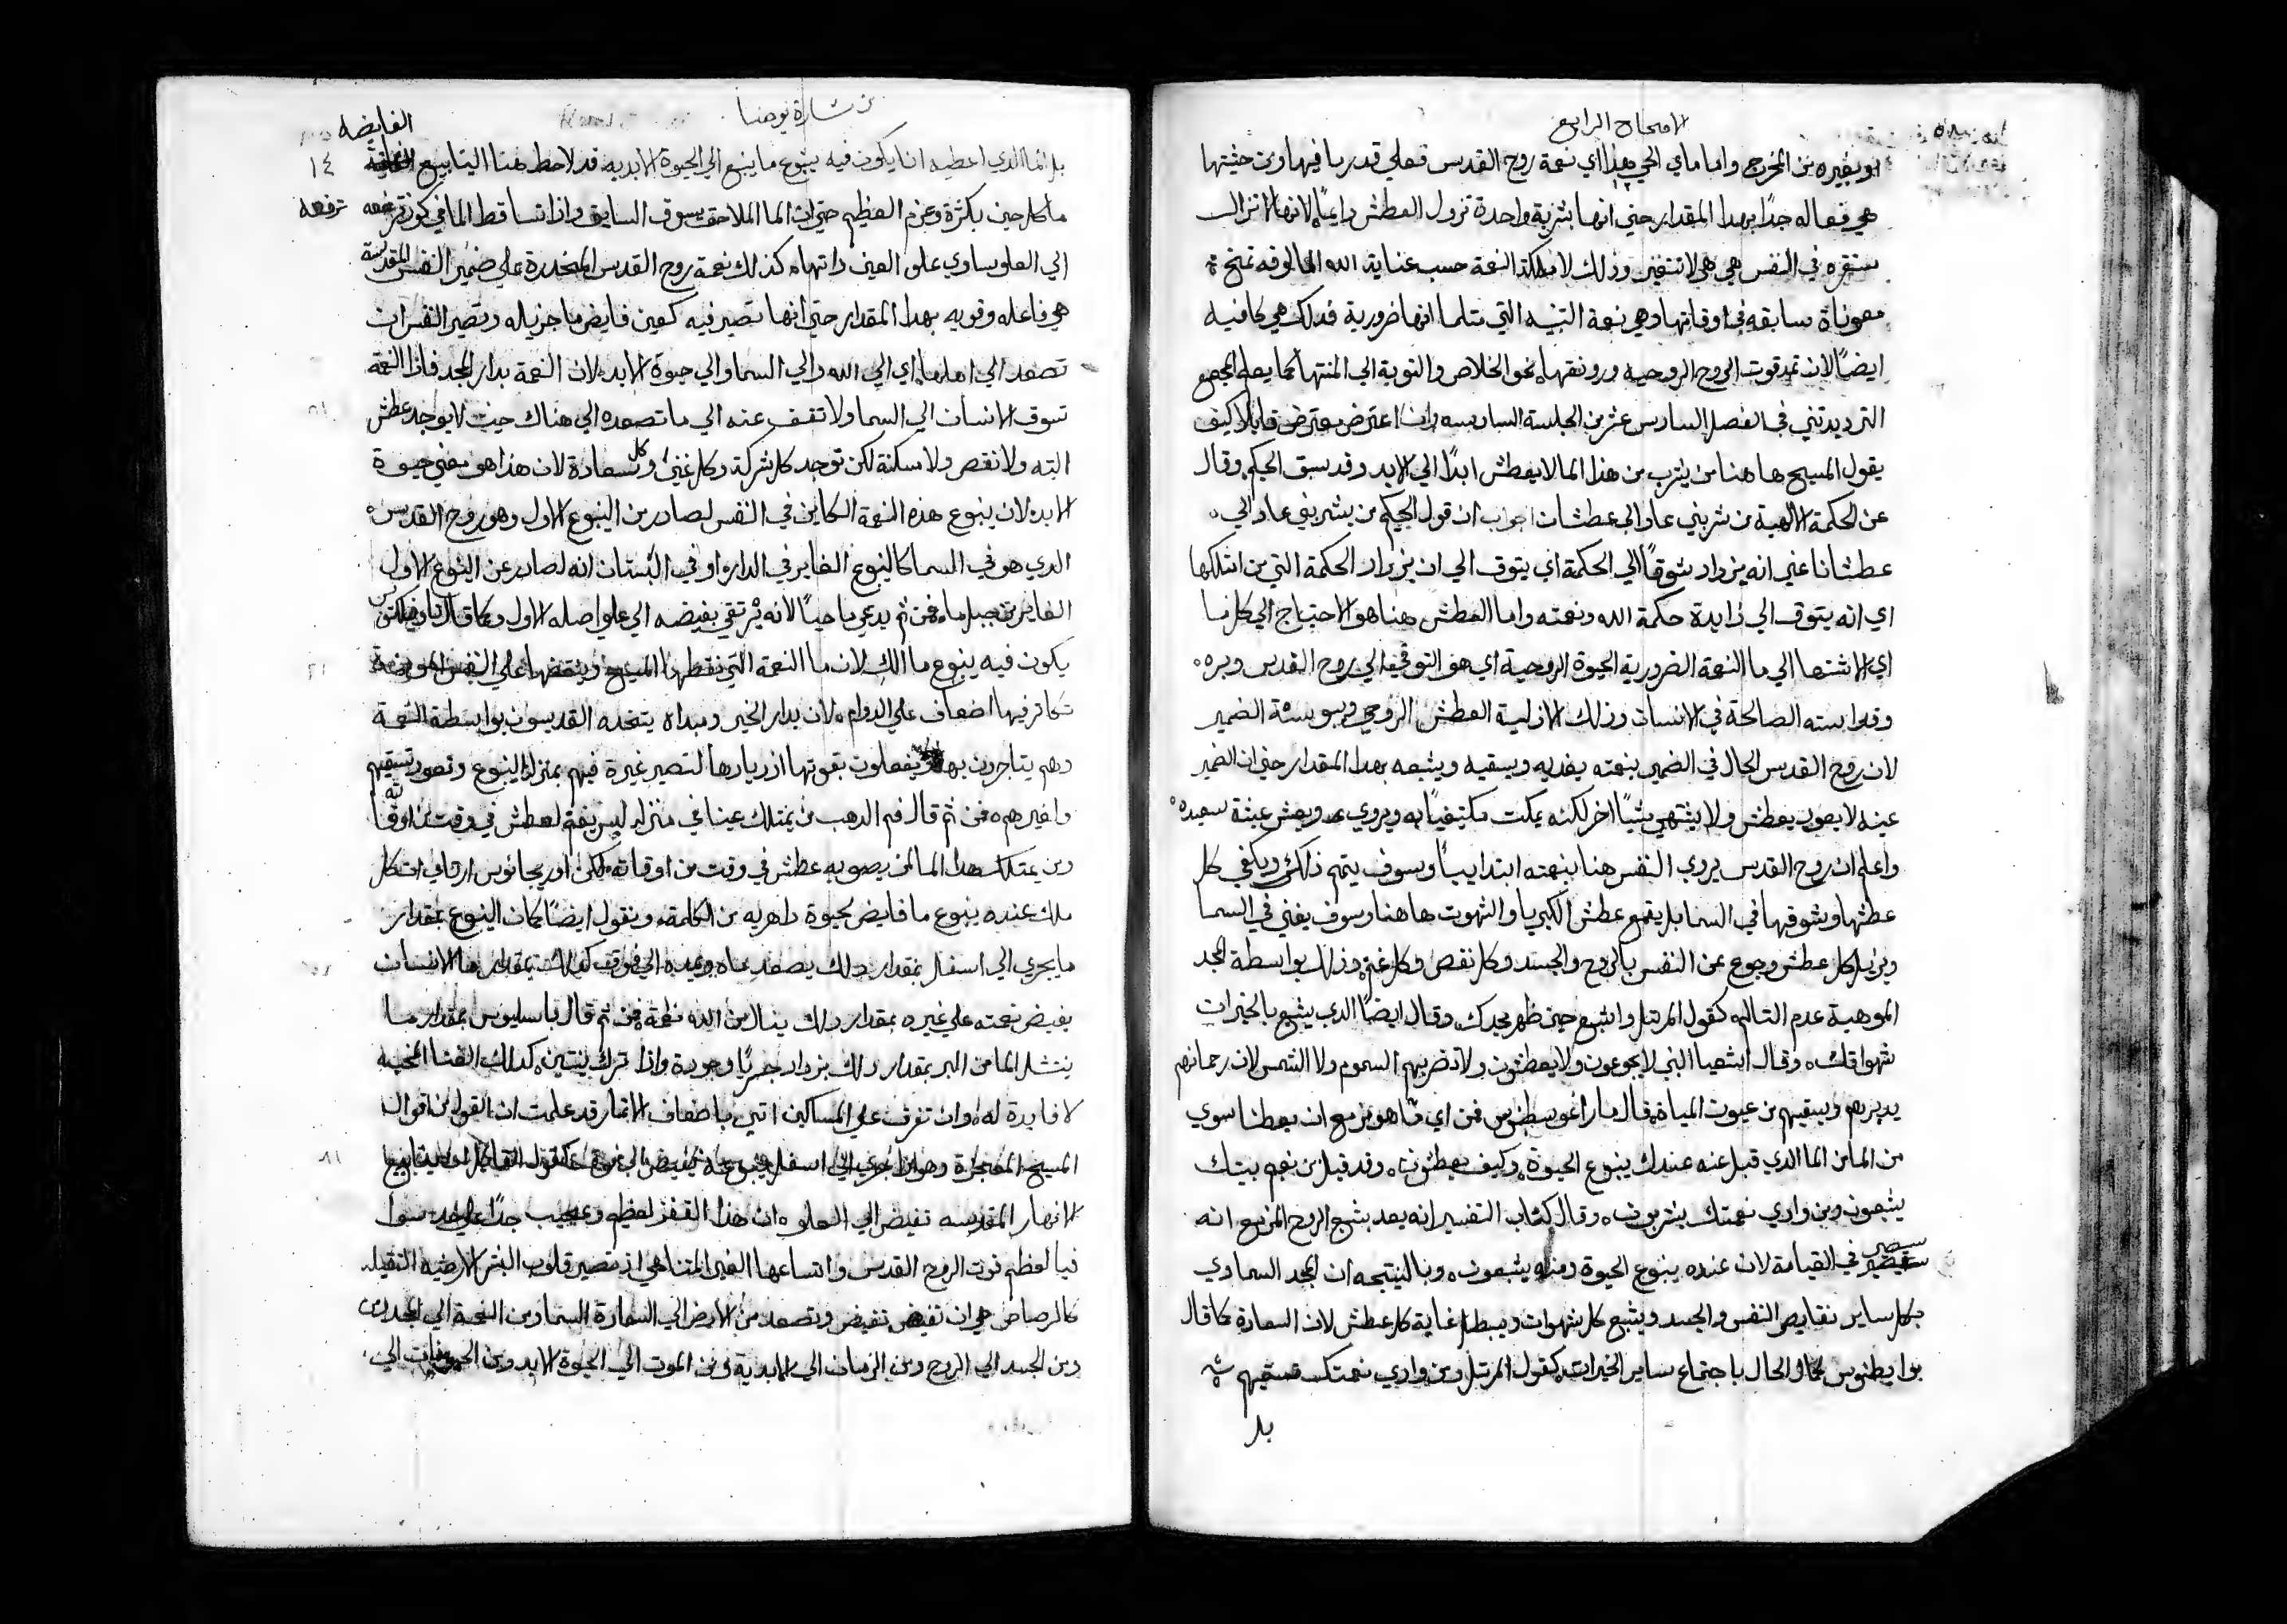 الاصحاح الرابع
او بغيره من المخرج واما ماي الحي هذا اي نعمة روح القدس فعلي قدر ما فيها ومن حيثيتها
هي فعاله جدًا بهدا المقدار حتي انها بشربة واحدة تزول العطش دايمًا لانها لا تزال
مستقره في النفس هي هي لا تتغير وذلك لان هكذا النعمة حسب عناية الله المالوفه تمنح
معوناة سابقه في اوقاتها وهي نعمة التي مثلما انها ضرورية فدلك هي كافيه
ايضًا لان تمد قوت الروح الروحيه ورونقها نحو الخلاص والتوبة الي المنتها كما يعلم المجمع
التريديتني في الفصل السادس عشر من الجلسة السادسه وان اعترض معترض قايلًا كيف
يقول المسيح ها هنا من يشرب من هذا الما لا يعطش ابدًا الي الابد وقد سبق الحكيم وقال
عن الحكمة الالهية من شربني عاد الي عطشان اجواب ان قول الحكيم من يشربني عاد الي
عطشانا غير انه يزداد شوقًا الي الحكمة اي يتوق الي ان يزداد الحكمة التي من امتلكها
اي انه يتوق الي زايدة حكمة الله ونعمته واما العطش هنا هو الاحتياج الي كل ما
اي الاشتها الي ما النعمة الضرورية الحيوة الروحية اي هو التوق الي روح القدس وبره
وقداسته الصالحة في الانسان وذلك لازلية العطش الروحي ويبوسة الضمير
لان روح القدس الحال في الضمير بنعمته يغديه ويسقيه ويشبعه بهدا المقدار حتي ان الضمير
عينه لا يعود يعطش ولا يشتهي شيًا اخر لكنه يمكت مكتفيًا به ويروي ويعش عيشة سعيده
واعلم ان روح القدس يروي النفس هنا بنعمته ابتدايبًا وسوف يتمم ذلك ويكفي كل
عطشها وشوقها في السما بل يقمع عطش الكبريا والشهوت ها هنا وسوف يفني في السما
ويزيل كل عطش وجوع عن النفس بالروح والجسد وكل نقص وكل غم وذلك بواسطة المجد
الموهبة عدم التالم كقول المرتل واشبع حين ظهر مجدك وقال ايضًا الدي يشبع بالخيرات
شهواتك وقال اشعيا النبي لا يجوعون ولا يعطشون ولا تضربهم السموم ولا الشمس لان رحمانهم
يدبرهم ويسقيهم من عيون المياة فقال مار اغوسطوس فمن اي ما هو مزمع ان يعطنا سوي
من الما من الما الدي قيل عنه عندك ينبوع الحيوة وكيف يعطشون وقد قيل من نعم بيتك
يشبعون ومن وادي نعمتك يشربون وقال كتاب التفسير انه يعد بشبع الروح المزمع انه
سيصير في القيامة لان عنده ينبوع الحيوة ومنه يشبعون وبالنتيجه ان المجد السماوي
يكل ساير نقايص النفس والجسد ويشبع كل شهوات ويبطل غاية كل عطش لان السعادة كما قال
بوايطيوس لحا والحال باجتماع ساير الخيرات كقول المرتل ومن وادي نعمتك تسقيهم
بل
من بشارة يوحنا
الفايضه
بل الما الدي اعطيه انا يكون فيه ينبوع ما ينبع الي الحيوة الابديه قد لاحظ هنا الينابيع
١٤
ما كل حين بكثرة وعزم العظيم حتي ان الما الملاحق يسوق السابق واذا تساقط الما في كونه ترفعه
ترفعه
الي العلو ساوي علو العين داتها كذلك نعمة روح القدس المنحدرة علي ضمير النفس المقدسة
هي فاعله وقويه بهدا المقدار حتي انها تصير فيه كعين فايض ما جزيله وتصير النفس ان
تصعد الي اصلها اي الي الله والي السما والي حيوة الابد لان النعمة بدار المجد فاذا النعمة
تسوق الانسان الي السما ولا تقف عنه الي ما تصعده الي هناك حيث لا يوجد عطش
البته ولا نقص ولا مسكنة لكن توجد كل شركة وكل غني وكل سعادة لان هذا هو معني حيوة
الابد لان ينبوع هذه النعمة الكاين في النفس لصادر من الينبوع الاول وهو روح القدس
الدي هو في السما كالينبوع الفاير في الدار او في البستان انه لصادر عن الينبوع الاول
الفاير من جبل ما فمن ثم يدعي ما حيًا لانه يرتقي بفيضه الي علو اصله الاول وكما قال
يكون فيه ينبوع ما الك لان ما النعمة التي يعطيها المسيح ويفيضها علي النفس المومنة
تكاثر فيها اضعاف علي الدوام لان بدار الخير ومبداه يتخده القديسون بواسطة النعمة
وهم يتاجرون بها ويفعلون بقوتها ازديادها لتصير غيرة فيهم بمنزلة الينبوع وتعود تسقيهم
واغيرهم فمن ثم قال فم الدهب من يمتلك عينا في منزله ليس يغم لعطش في وقت من اوقاته
ومن يمتلك هدا الما لن يصوبه عطش في وقت من اوقاته لكن اوريجانوس ارتاي ان كل
ملك عنده ينبوع ما فايض لحيوة داهريه من الكلمة ونقول ايضًا كما ان الينبوع بمقدار
ما يجري الي اسفل بمقدار دلك يصعد ماه ويمده الي فوق كدلك بمقدار ما الانسان
يفيض نعمته علي غيره بمقدار دلك ينال من الله نعمة فمن ثم قال باسليوس بمقدار ما
ينتشل الما من البير بمقدار دلك يزداد جريًا وجودة واذا ترك ينتين كدلك الغنا المخبه
لا فايدة له وان تفرق علي المساكين اتي باضعاف الاثمار قد علمت ان القول من اقوال
المسيح المعجزة وهو ان يجري الي اسفل
الانهار المقدسه تفيض الي العلو ان هذا القفز لعظيم وعجيب جدًا علي حد سوا
فيا لعظم قوت الروح القدس واتساعها الغير المتناهي اذ تصير قلوب البشر الارضيه الثقيله
كالرصاص هي ان تفيض تفيض وتصعد من الارض الي السعادة السما ومن النعمة الي المجد
ومن الجسد الي الروح ومن الزمان الي الابدية ومن الموت الي الحيوة الابد ومن الي